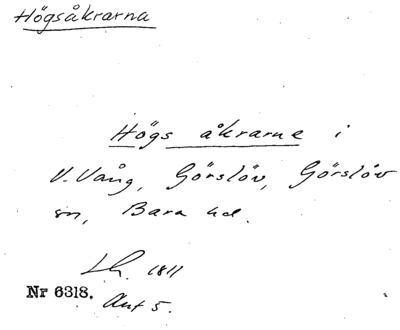 Högsåkrarna
Högs åkrarne i
V. Vång, Görslöv, Görslöv
sn, Bara hd.
Lh. 1811
Nr 6318.
Akt 5.